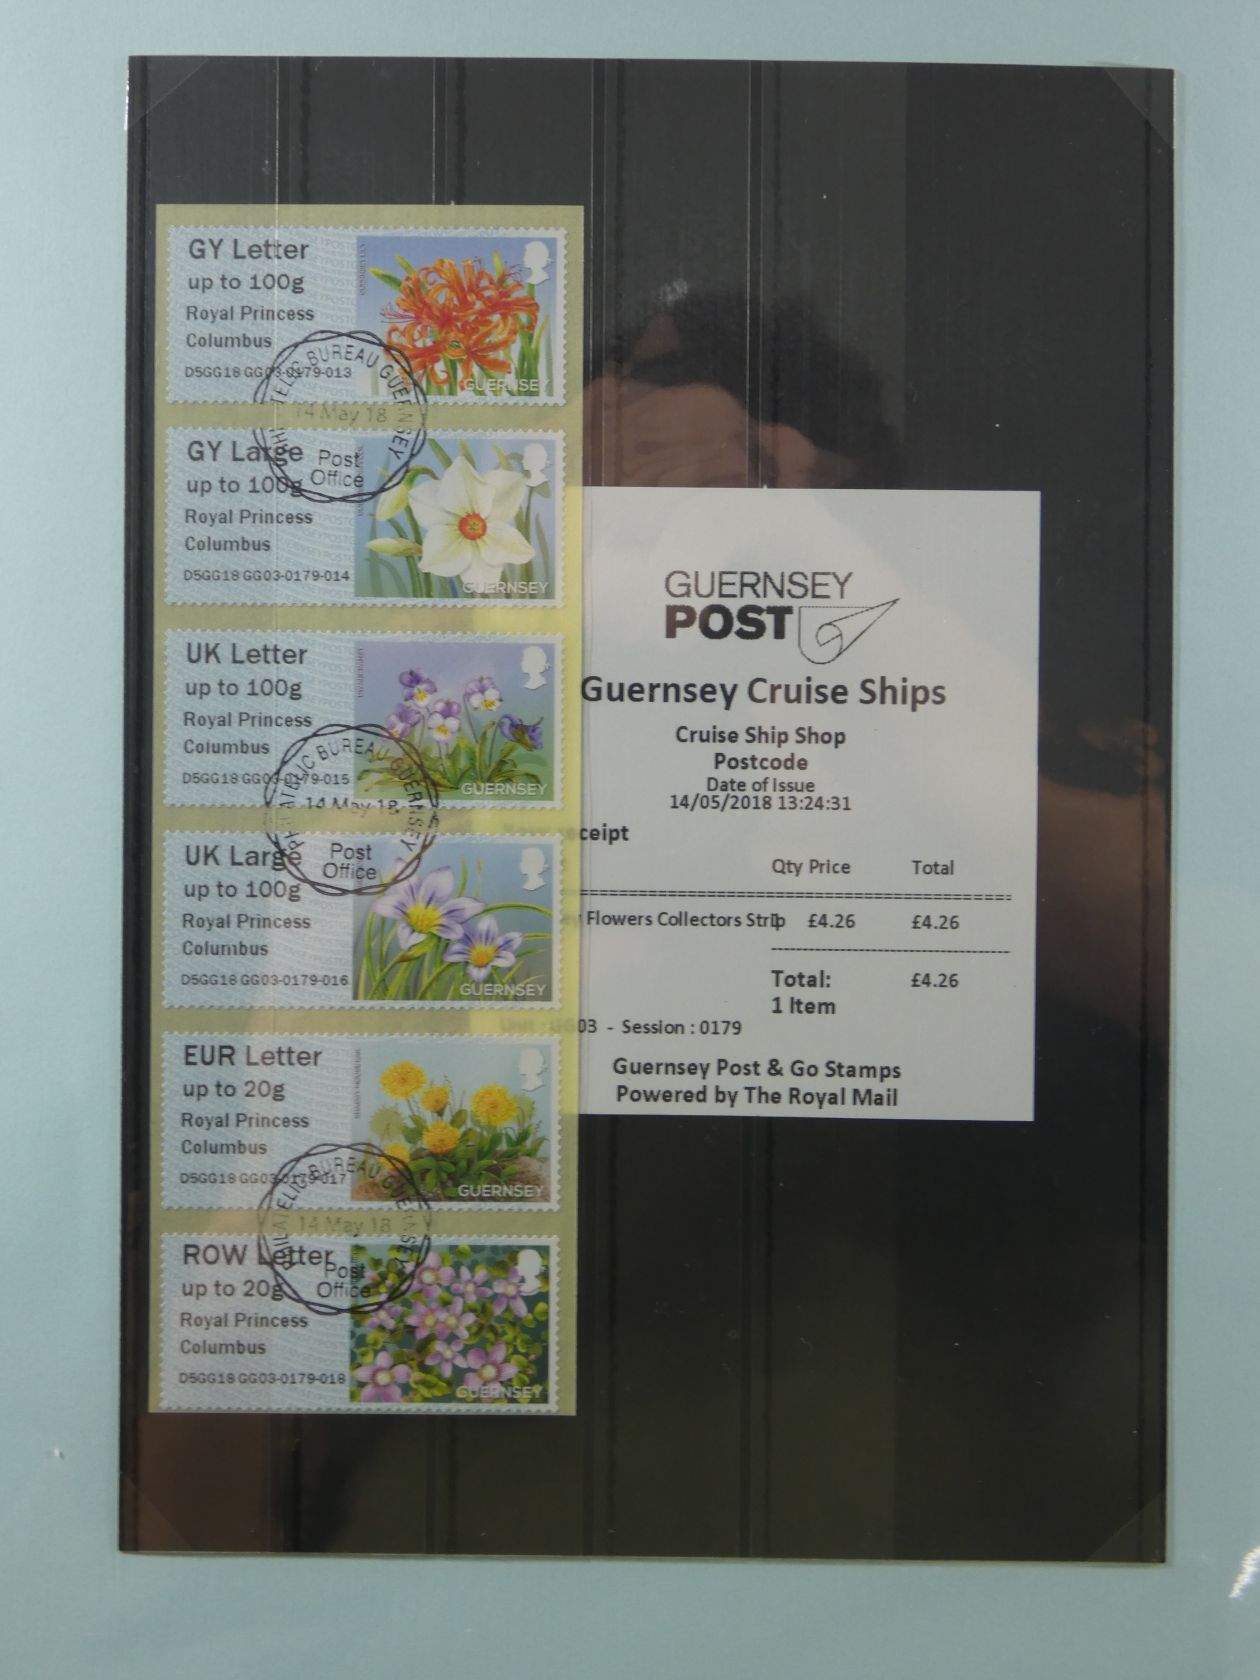 GY Letter
up to 100g
Royal Princess
Columbus
D5GG18 GG03-0179-013
GUERNSEY
PHILATELIC BUREAU GUERNSEY
14 May 18
Post
Office
GY Large
up to 100g
Royal Princess
Columbus
D5GG18 GG03-0179-014
GUERNSEY
UK Letter
up to 100g
Royal Princess
Columbus
D5GG18 GG03-0179-015
GUERNSEY
PHILATELIC BUREAU GUERNSEY
14 May 18
Post
Office
UK Large
up to 100g
Royal Princess
Columbus
D5GG18 GG03-0179-016
GUERNSEY
EUR Letter
up to 20g
Royal Princess
Columbus
D5GG18 GG03-0179-017
GUERNSEY
PHILATELIC BUREAU GUERNSEY
14 May 18
Post
Office
ROW Letter
up to 20g
Royal Princess
Columbus
D5GG18 GG03-0179-018
GUERNSEY
GUERNSEY
POST
Guernsey Cruise Ships
Cruise Ship Shop
Postcode
Date of Issue
14/05/2018 13:24:31
ceipt
Qty Price Total
Flowers Collectors Strip £4.26 £4.26
Total: £4.26
1 Item
Unit : GG03 - Session : 0179
Guernsey Post & Go Stamps
Powered by The Royal Mail